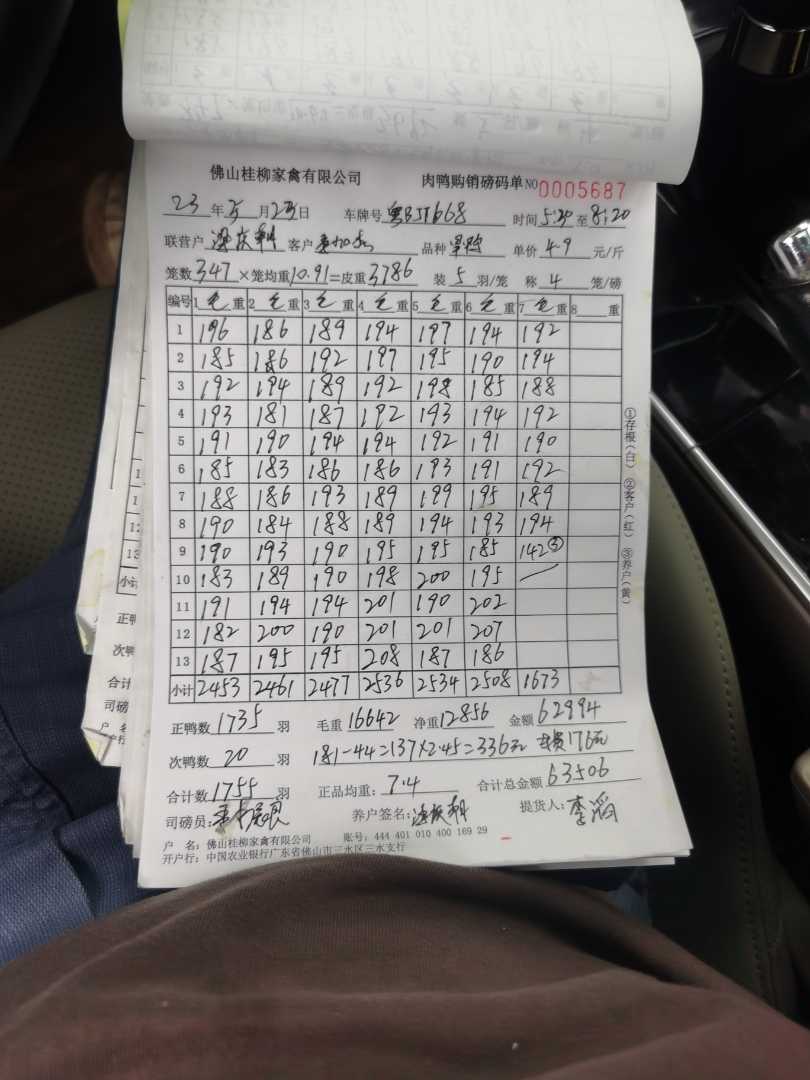 佛山桂柳家禽有限公司 肉鸭购销磅码单 NO 0005687
23年5月23日 车牌号 时间5:20至8:20
联营户 客户 品种 单价4.9元/斤
笼数347×笼均重10.91=皮重3786 装5羽/笼 称4笼/磅
编号 1毛重 2毛重 3毛重 4毛重 5毛重 6毛重 7毛重 8 重
1 196 186 189 194 197 194 192
2 185 186 192 197 195 190 194
3 192 194 189 192 198 185 188
4 193 181 187 192 193 194 192
5 191 190 194 194 192 191 190
6 185 183 186 186 193 191 192
7 188 186 193 189 199 195 189
8 190 184 188 189 194 193 194
9 190 193 190 195 195 185 142③
10 183 189 190 198 200 195
11 191 194 194 201 190 202
12 182 200 190 201 201 207
13 187 195 195 208 187 186
小计 2453 2461 2477 2536 2534 2508 1673
正鸭数1735羽 毛重16642 净重12856 金额62994
次鸭数20羽 181-44=137×2.45=336元 176元
合计数1755羽 正品均重:7.4 合计总金额63506
司磅员: 养户签名: 提货人:李滔
户 名:佛山桂柳家禽有限公司 账号:444 401 010 400 169 29
开户行:中国农业银行广东省佛山市三水区三水支行
①存根(白) ②客户(红) ③养户(黄)